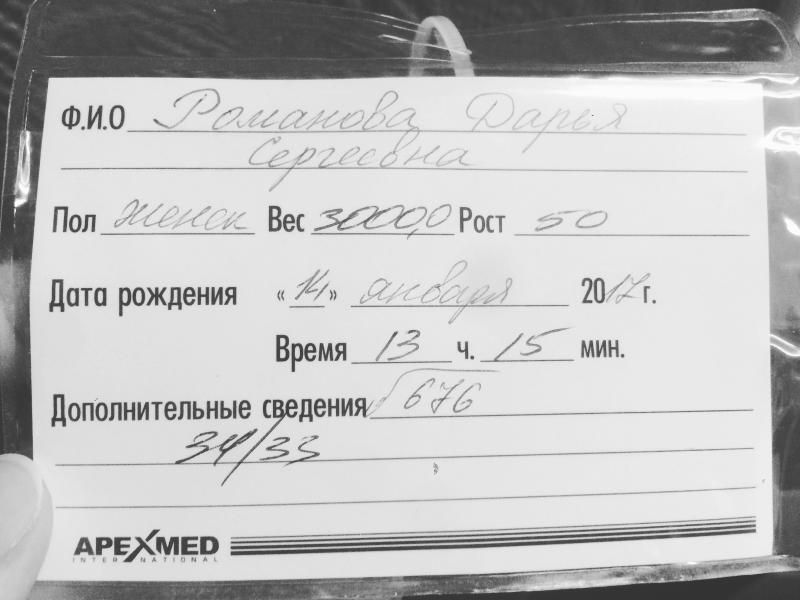 Ф.И.О Романова Дарья
Сергеевна
Пол женск Вес 3000,0 Рост 50
Дата рождения «14» января 2017 г.
Время 13 ч. 15 мин.
Дополнительные сведения √676
34/33
APEXMED
INTERNATIONAL